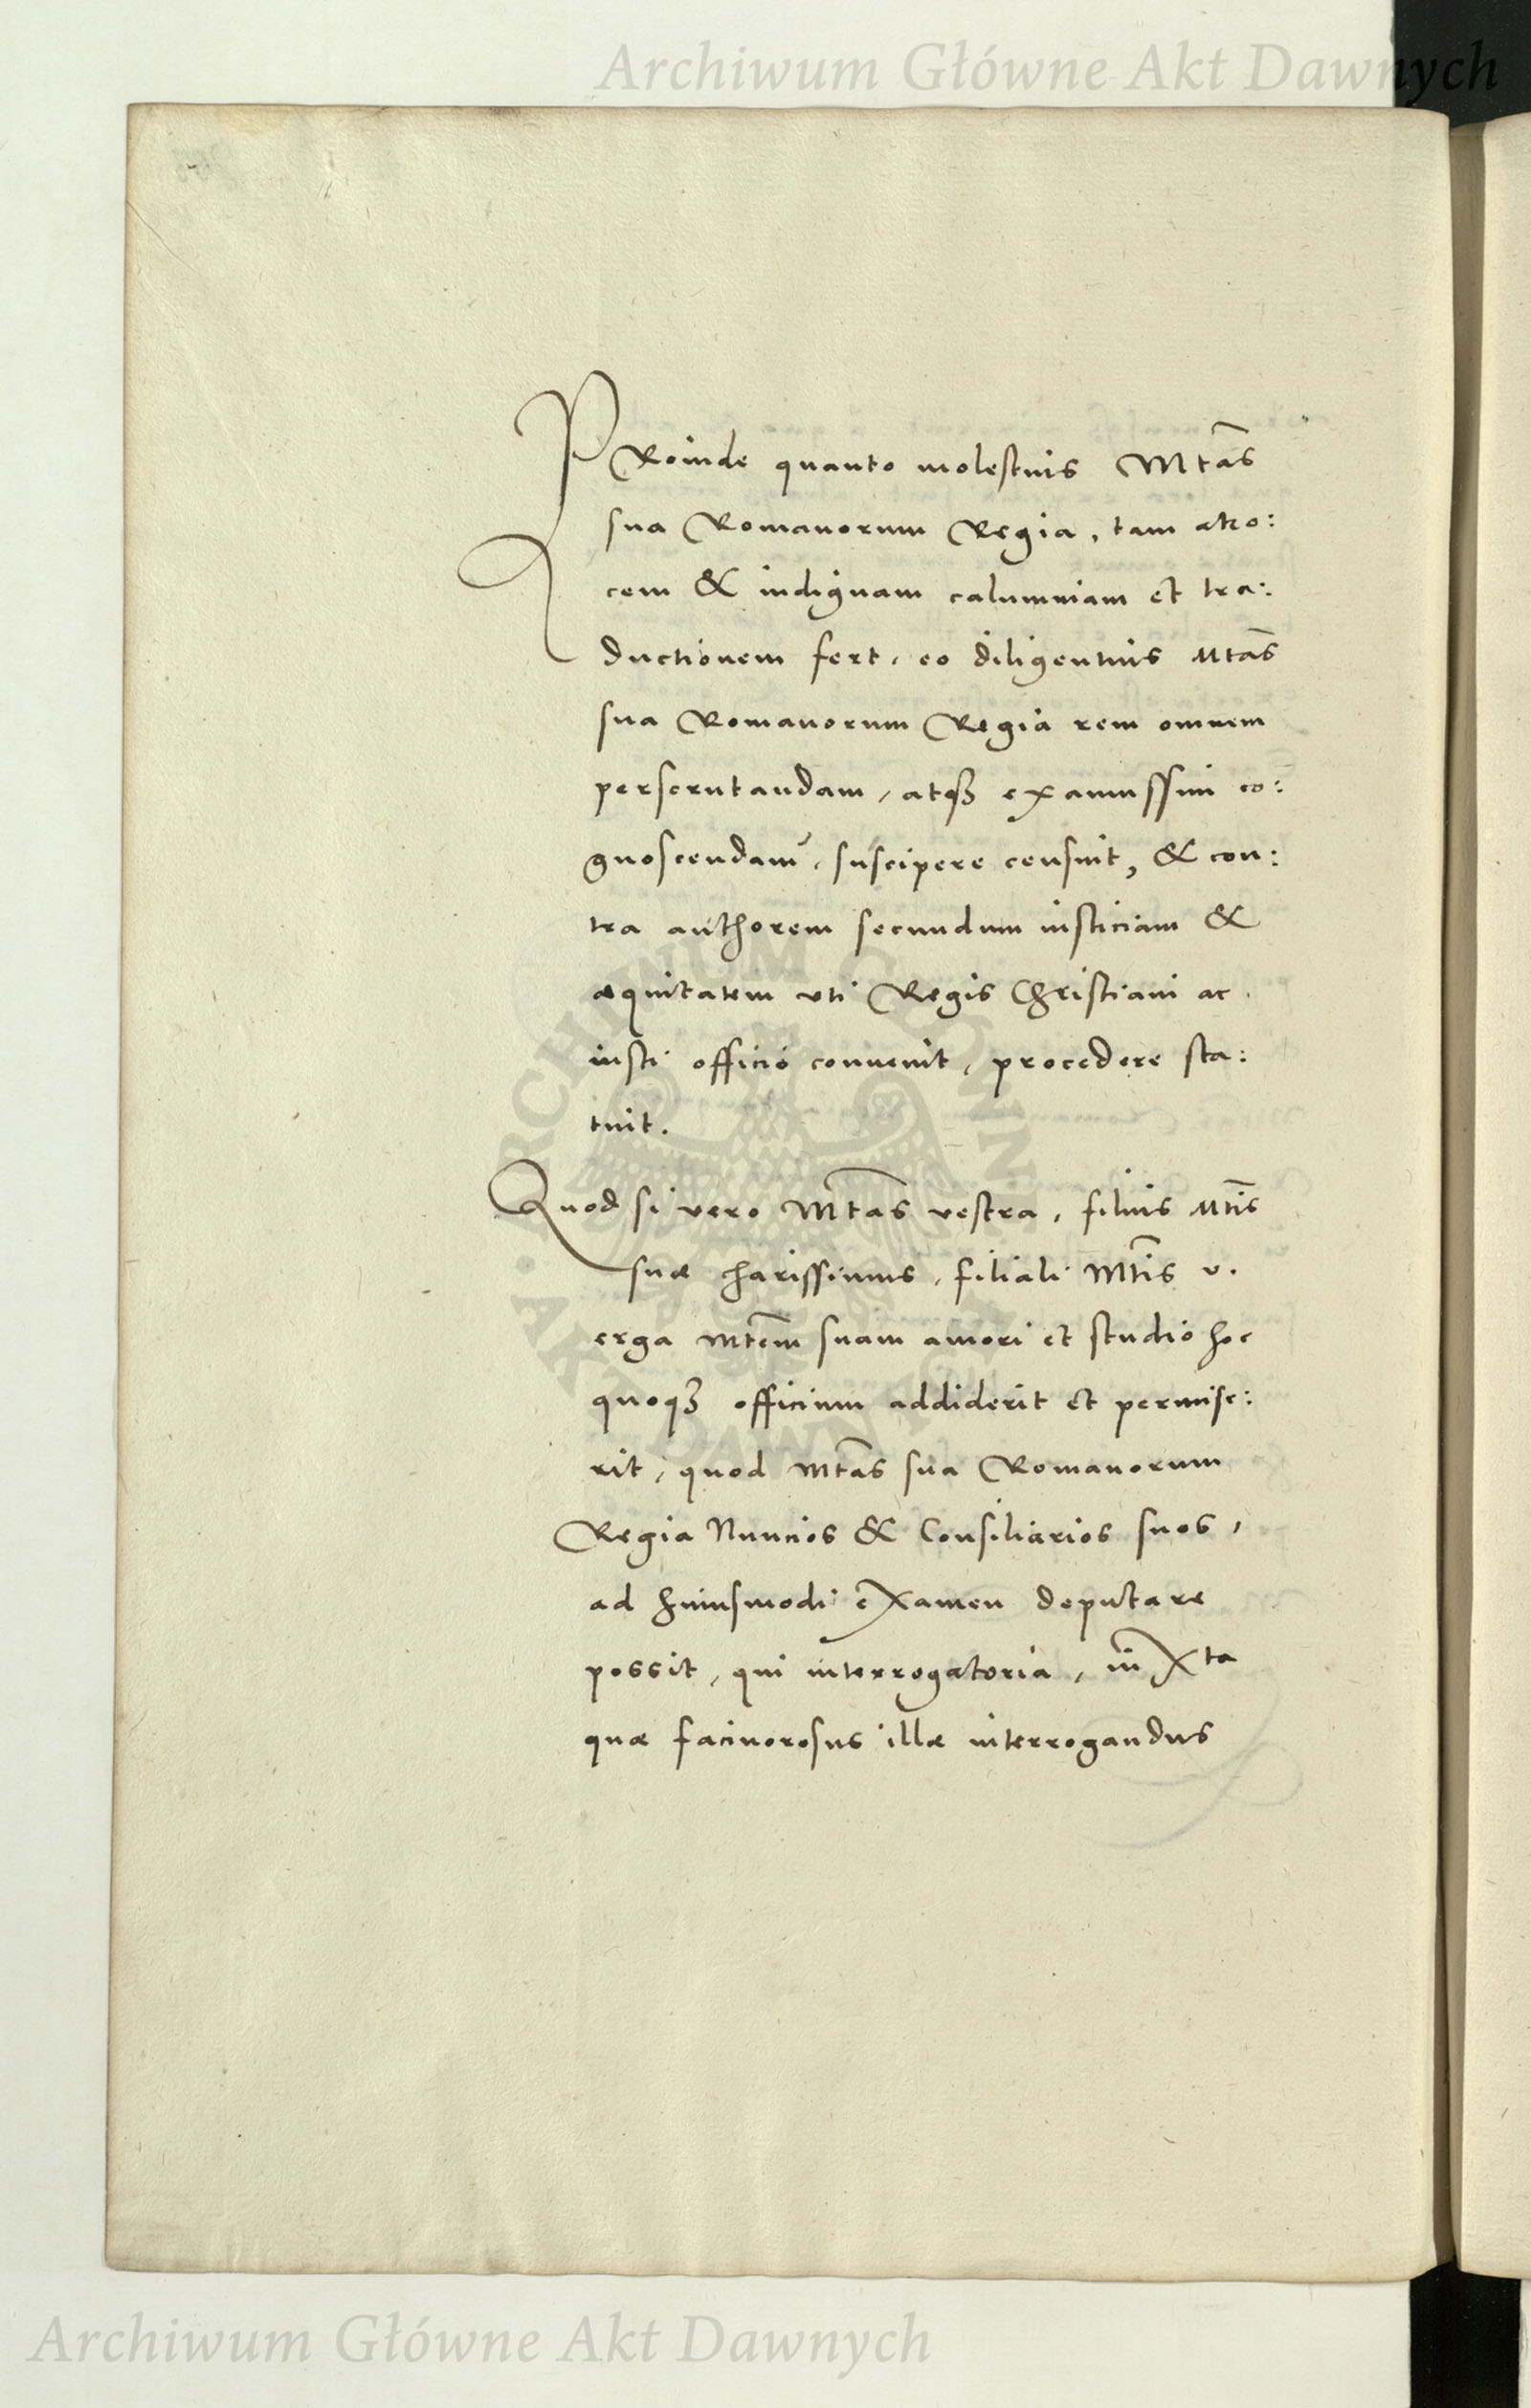 Archiwum Główne Akt Dawnych
PRoinde quanto molestius Mtas
sua Romanorum Regia, tam atro:
cem & indignam calumniam et tra:
ductionem fert, eo diligentius Mtas
sua Romanorum Regia rem omnem
perscrutandam, atqȝ examussim co:
gnoscendam, suscipere censuit, & con:
tra authorem secundum iusticiam &
æquitatem uti Regis Christiani ac
iusti officio conuenit, procedere sta:
tuit.
Quod si vero Mtas vestra, filius Mtis
suæ charissimus, filiali Mtis v.
erga Mtem suam amori et studio hoc
quoqȝ officium addiderit et permise:
rit, quod Mtas sua Romanorum
Regia Nuncios & Consiliarios suos,
ad huiusmodi examen deputare
possit, qui interrogatoria, iuxta
quæ facinorosus illæ interrogandus
ARCHIWUM GŁÓWNE
AKT DAWNYCH
Archiwum Główne Akt Dawnych